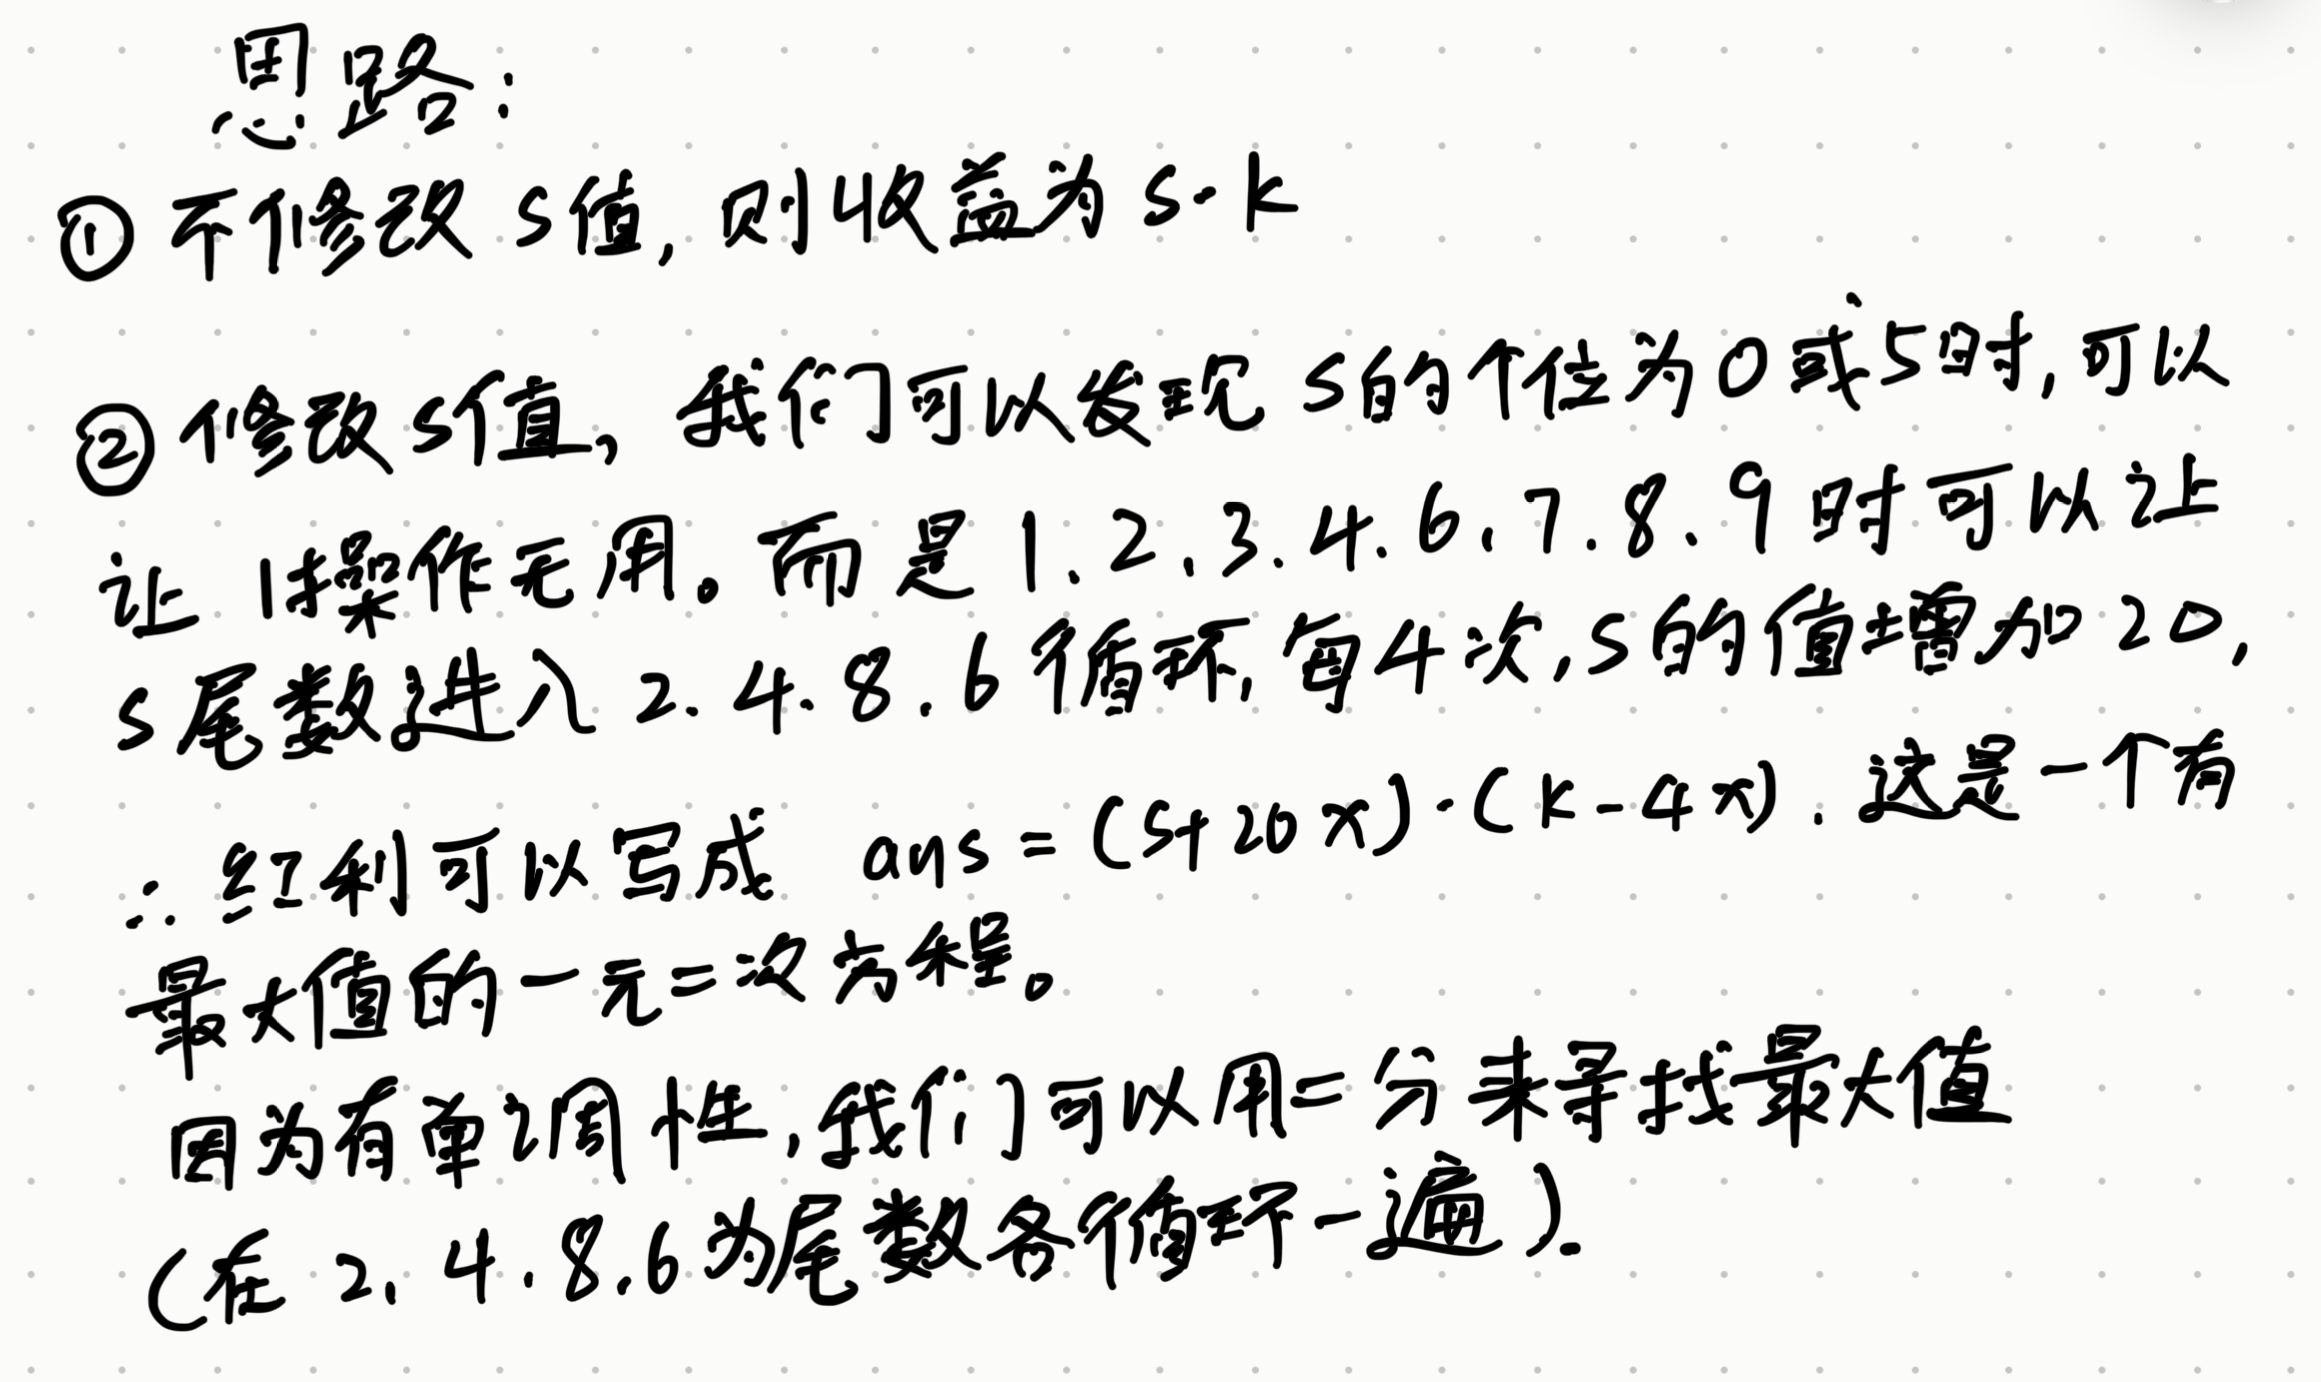 思路:
① 不修改 s值,则收益为 s·k
② 修改s值,我们可以发现 s的个位为0或5时,可以
让 1操作无用。而是1.2.3.4.6.7.8.9时可以让
s尾数进入 2.4.8.6循环,每4次,s的值增加20,
∴红利可以写成 ans=(s+20x)·(k-4x).这是一个有
最大值的一元二次方程。
因为有单调性,我们可以用二分来寻找最大值
(在 2.4.8.6为尾数各循环一遍).